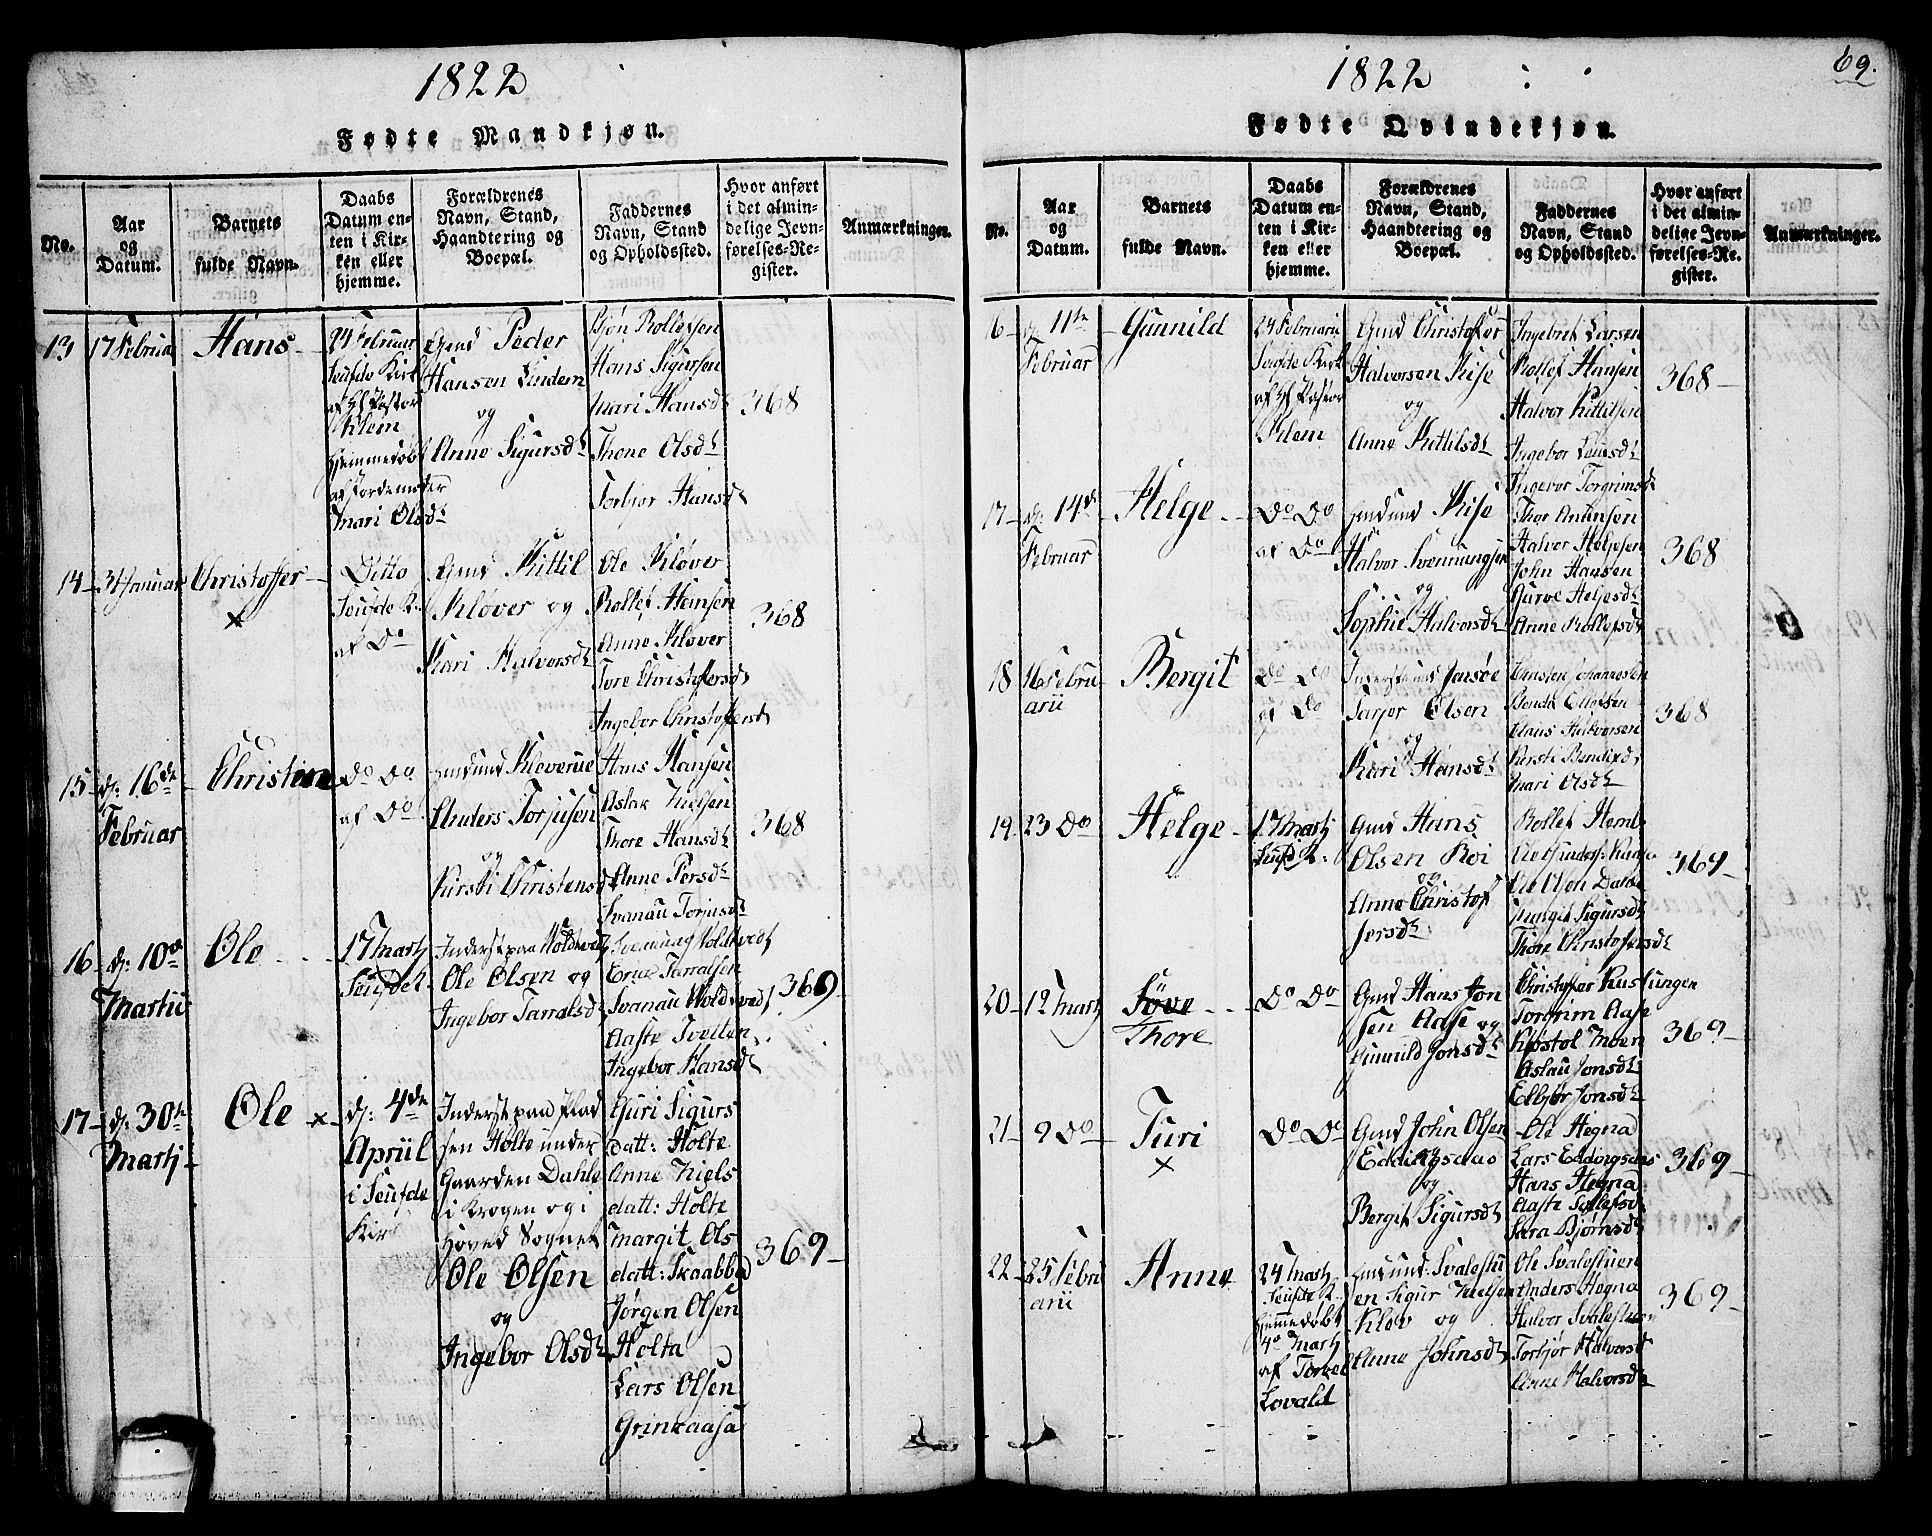 1822
Fødte Mandkjøn.
No.
Aar
og
Datum.
Barnets
fulde Navn.
Daabs
Datum en-
ten i Kir-
ken eller
hjemme.
Forældrenes
Navn, Stand,
Haandtering og
Boepæl.
Faddernes
Navn, Stand
og Opholdssted.
Hvor anført
i det almin-
delige Jevn-
førelses-Re-
gister.
Anmærkninger.
13
17 Februar
Hans
24 Februar
Seufde Kirk
af Hr Pastor
Klem
hjemmedøbt
af Jordemoder
Mari Olsdr
Gmd Peder
Hansen Lindem
og
Anne Sigursdr
Bjøn Rollefsen
Hans Sigursen
Mari Hansdr
Thone Olsdr
Torbjør Hansdr
368
14
31 Januar
Christoffer
×
Ditto
Seufde K.
af Do
Gmd Kittil
Kløver og
Kari Halvorsdr
Ole Kløver
Rollef Hansen
Anne Kløver
Tore Christofersdr
Ingebor Christoffersdr
368
15
d: 16de
Februar
Christian
Do Do
af Do
Anders Torjusen
og
Kirsti Christensdr
Hans Hansen
Aslak Nielsen
Thore Hansdr
Anne Persdr
Svanau Torjusdr
368
16
d: 10de
Martii
Ole
17 Martj
Seufde K.
Inderst paa Holdtvedt
Ole Olsen og
Ingebor Tarralsdr
Svenung Voldtvedt
Eric Tarralsen
Svanau Woldtvedt
Aaste Tveiten
Ingebor Hansdr
369
17
d: 30te
Martj
Ole ×
d: 4de
Apriil
i Seufde
Kirk
Inderst paa Plad
sen Holte under
Gaarden Dahle
i Krogen og i
Hoved Sognet
Ole Olsen
og
Ingebor Olsdr
Guri Sigurs
datt: Holte
Anne Niels
datt: Holte
Margit Ols
datt: Skaabba
Jørgen Olsen
Holta
Lars Olsen
Grinraasa
369
1822
69.
Fødte Qvindekjøn.
No.
Aar
og
Datum.
Barnets
fulde Navn.
Daabs
Datum en-
ten i Kir-
ken eller
hjemme.
Forældrenes
Navn, Stand,
Haandtering og
Boepæl.
Faddernes
Navn, Stand
og Opholdssted.
Hvor anført
i det almin-
delige Jevn-
førelses-Re-
gister.
Anmærkninger.
6
d: 11te
Februar
Gunnild
24 Februarii
Seufde Kirk
af Hr Pastor
Klem
Gmd Christofer
Halvorsen Kise
og
Anne Kittilsdr
Ingebret Larsen
Rollef Hansen
Halvor Kittilsen
Ingebor Leuesdr
Ingebor Torgrimsdr
368
17
d: 14de
Februar
Helge
Do Do
af Do
Kise
Halvor Svennungsen
og
Sophie Halvorsdr
Thor Antensen
Halvor Heljesen
John Hansen
Gurve Heljesdr
Anne Rollefsdr
368
18
16 Febru
arii
Bergit
Do Do
af Do
Tarjer Olsen
og
Kari Hansdr
Christen Johannesen
Clans Halvorsen
Kersti Bendixdr
Mari Olsdr
368
19
23 Do
Helge
17 Martj
Seufde K.
Gmd Hans
Olsen Roi
og
Anne Christof
fersdr
Rollef Heml
Ole Olsen Dahle
Margit Sigursdr
Thore Christofersdr
369
20
12 Martj
Søve
Thore
Do Do
Gmd Hans Jon
sen Aase og
Gunnild Jonsdr
Christoffer Kustungen
Torgrim Aase
Køstol Moen
Aslau Jonsdr
Elbjør Jonsdr
369
21
9 Do
Turi
×
Do Do
Gmd John Olsen
Eddingsaas
og
Bergit Sigursdr
Ole Hegna
Lars Eddingsaas
Hans Hegna
Aaste Tollefsdr
Sara Bjørnsdr
369
22
25 Febru
arii
Anne
24 Martj
Seufde K.
hjemmedøbt
4o Martj
af Torkel
Lovald
Svalestu
en Sigur Nielsen
Klev og
Anne Johnsdr
Ole Svalestuen
Anders Hegna
Halvor Svalestuen
Torbjør Halvorsdr
Anne Halvorsdr
369